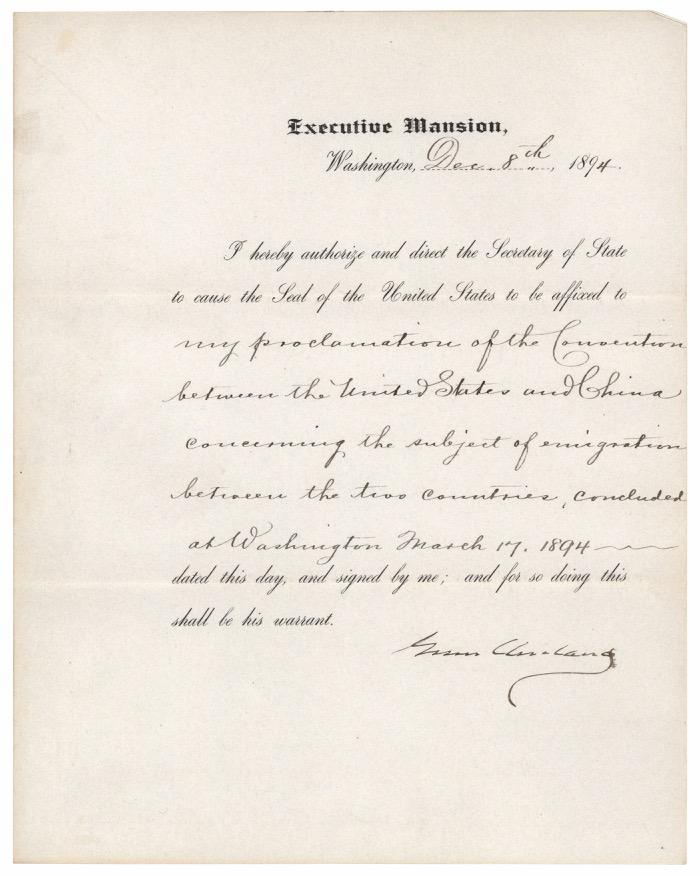 Executive Mansion,
Washington, Dec. 8th, 1894.
I hereby authorize and direct the Secretary of State
to cause the Seal of the United States to be affixed to
my proclamation of the Convention
between the United States and China
concerning the subject of emigration
between the two countries, concluded
at Washington March 17. 1894
dated this day, and signed by me; and for so doing this
shall be his warrant.
Grover Cleveland